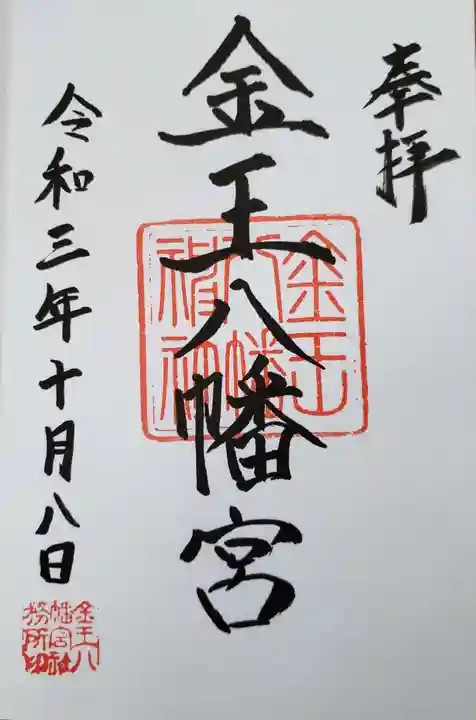 奉拝
金王八幡宮
金王八幡神社
令和三年十月八日
金王八幡宮社務所印